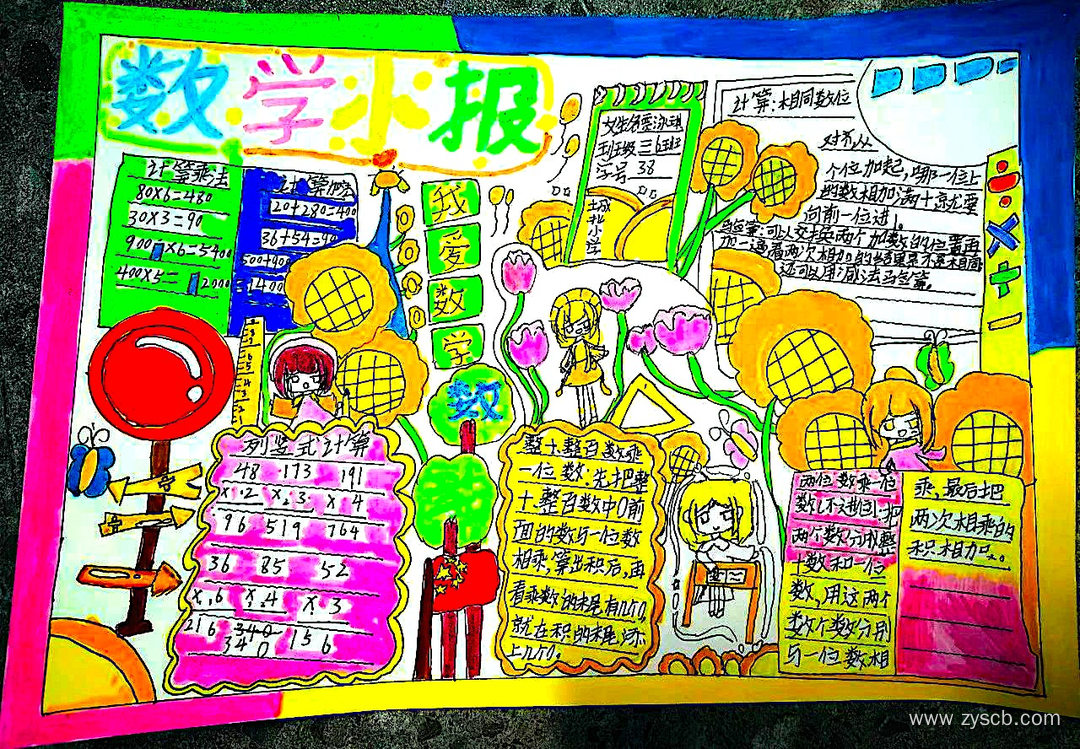 数学小报
计算乘法
80×6=480
30×3=90
900×6=5400
400×5= 2000
120+280=400
36+54=90
我
爱
数
学
班级 三6班
学号 38
计算:相同数位
对齐从
个位加起,哪一位上
的数相加满十就要
向前一位进1。
验算:可以交换两个加数的位置再
加一遍看两次相加的结果是不是相同
还可以用减法验算。
列竖式计算
48 173 191
×.2 ×.3 ×.4
96 519 764
36 85 52
×.6 ×.4 ×.3
216 340 156
340
数
整十整百数乘
一位数:先把整
十、整百数中0前
面的数与一位数
相乘,算出积后,再
看乘数的末尾有几个0,
就在积的末尾添
上几个0.
两位数乘一位
数(不进位):把
两个数分成整
十数和一位
数,用这两
数个数分别
与一位数相
乘,最后把
两次相乘的
积相加。
www.zyscb.com